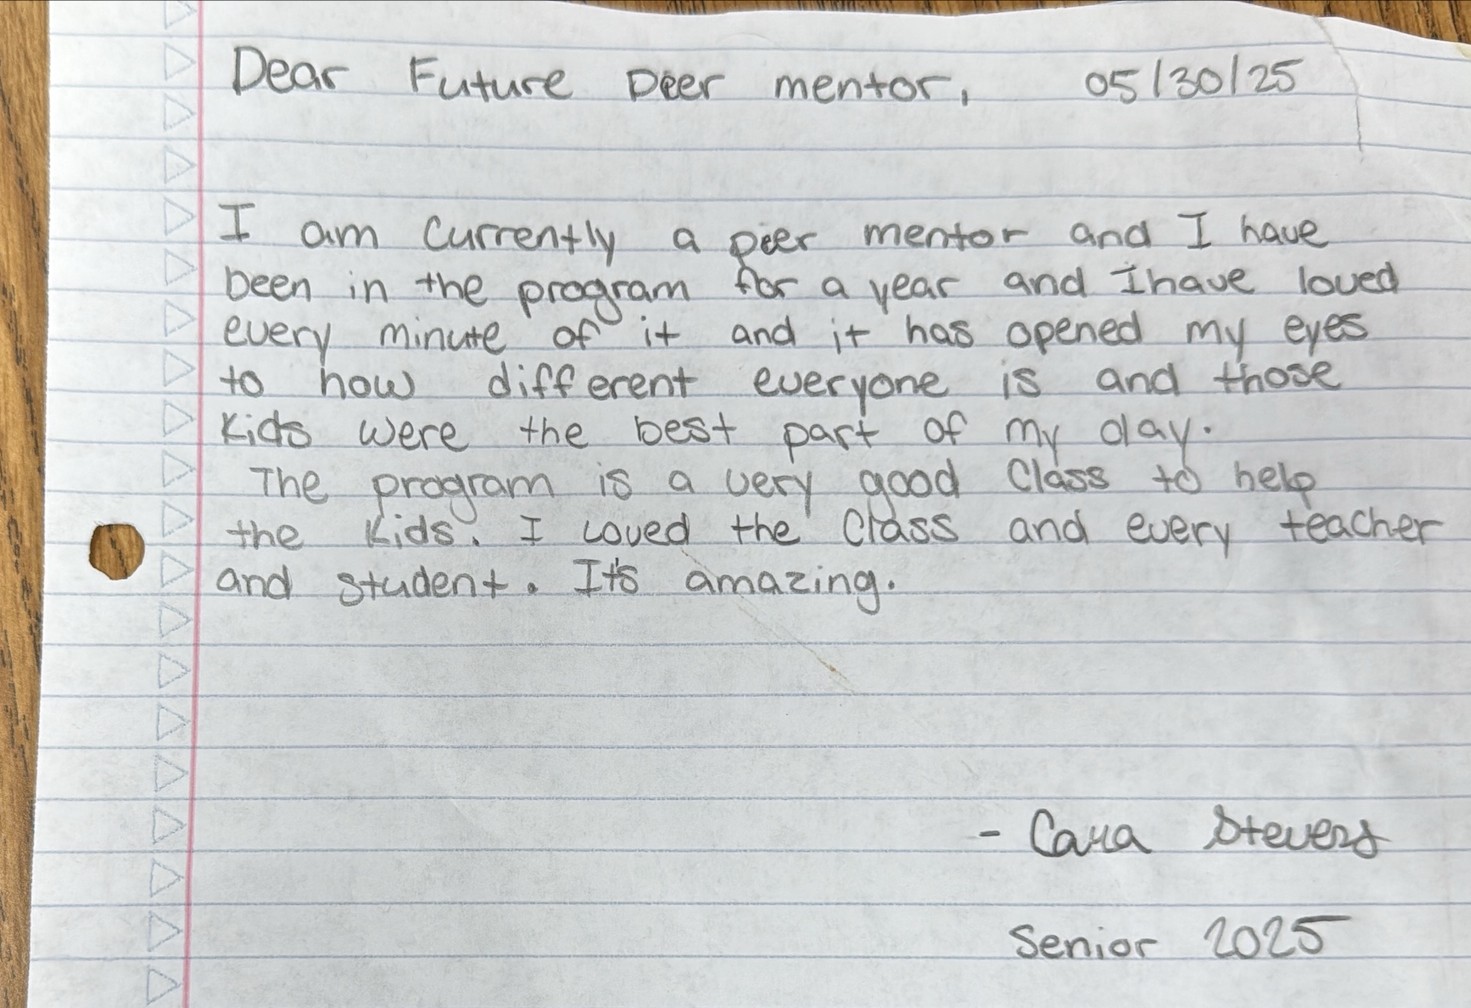 Dear Future peer mentor, 05/30/25
I am currently a peer mentor and I have
been in the program for a year and I have loved
every minute of it and it has opened my eyes
to how different everyone is and those
kids were the best part of my day.
The program is a very good class to help
the kids. I loved the class and every teacher
and student. It's amazing.
- Cara Stevens
Senior 2025